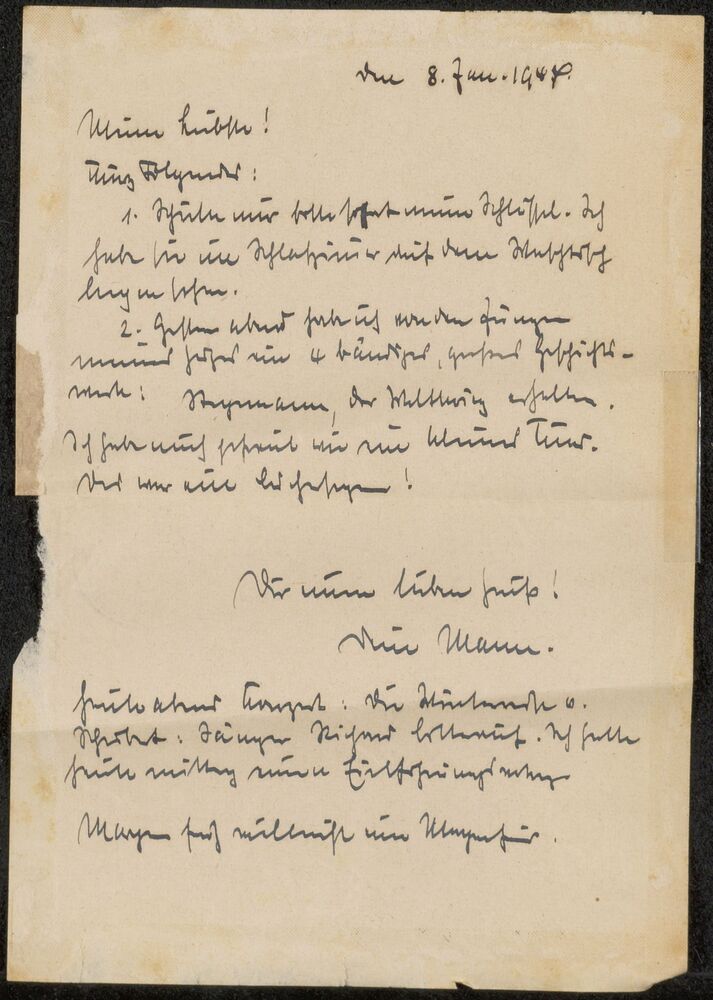 den 8. Jan. 1944.
Meine Liebste!
Kurz Folgendes:
1. Schicke mir bitte sofort meine Schlüssel. Ich
habe sie im Schlafzimmer auf dem Waschtisch
liegen lassen.
2. Gestern abend habe ich von den Jungen
meines ein 4 bändiges, großes Geschichts-
werk: Stegemann, der Weltkrieg erhalten.
Ich habe mich gefreut wie ein kleines Kind.
Das war eine
Dir einen lieben Gruß!
Dein Mann.
Heute abend Konzert: Die Winterreise v.
Schubert: Sänger Richard. Ich hatte
heute mittag einen Einführungsvortrag
Morgen früh vielleicht eine